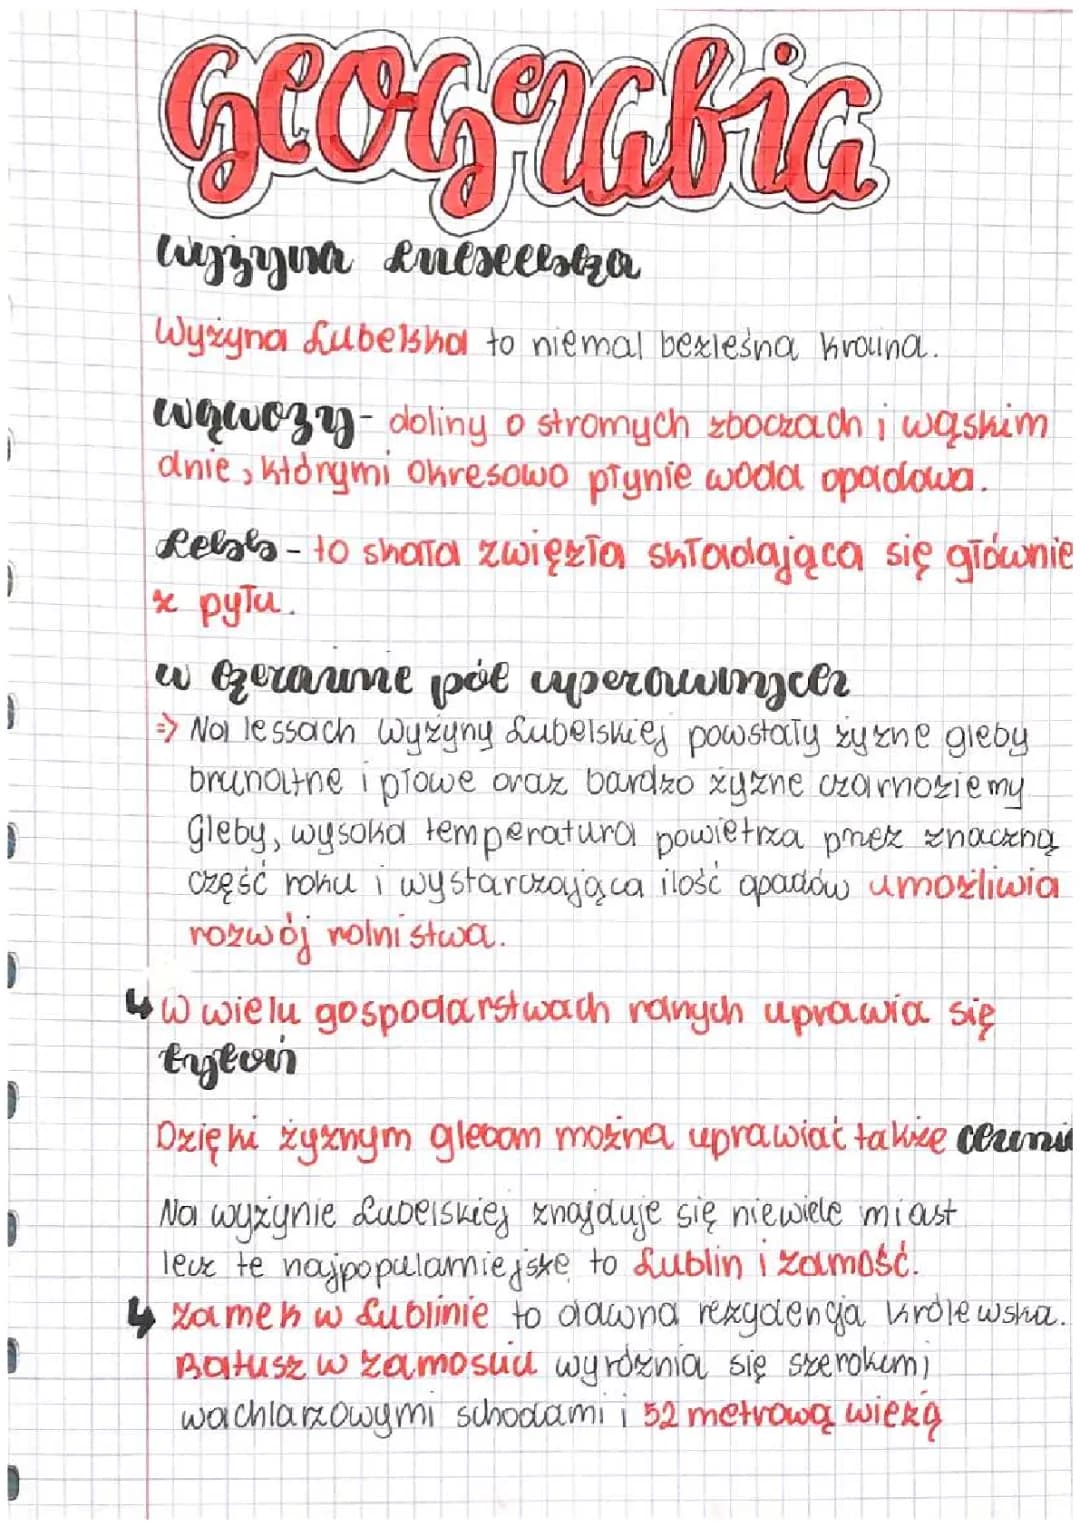 Geografia
Wyżyna Lubelska
Wyżyna Lubelska to niemal bezleśna kraina.
wąwozy - doliny o stromych zboczach i wąskim
dnie, którymi okresowo płynie woda opadowa.
Less - to skała zwięzła składająca się głównie
z pyłu.
w krainie pól uprawnych
=> Na lessach Wyżyny Lubelskiej powstały żyzne gleby
brunatne i płowe oraz bardzo żyzne czarnoziemy
Gleby, wysoka temperatura powietrza przez znaczną
część roku i wystarczająca ilość opadów umożliwia
rozwój rolnistwa.
↳ W wielu gospodarstwach rolnych uprawia się
tytoń
Dzięki żyznym glebom można uprawiać także
Na wyżynie Lubelskiej znajduje się niewiele miast
lecz te najpopularniejsze to Lublin i Zamość.
↳ Zamek w Lublinie to dawna rezydencja królewska.
Ratusz w Zamościu wyróżnia się szerokimi
wachlarzowymi schodami i 52 metrową wieżą